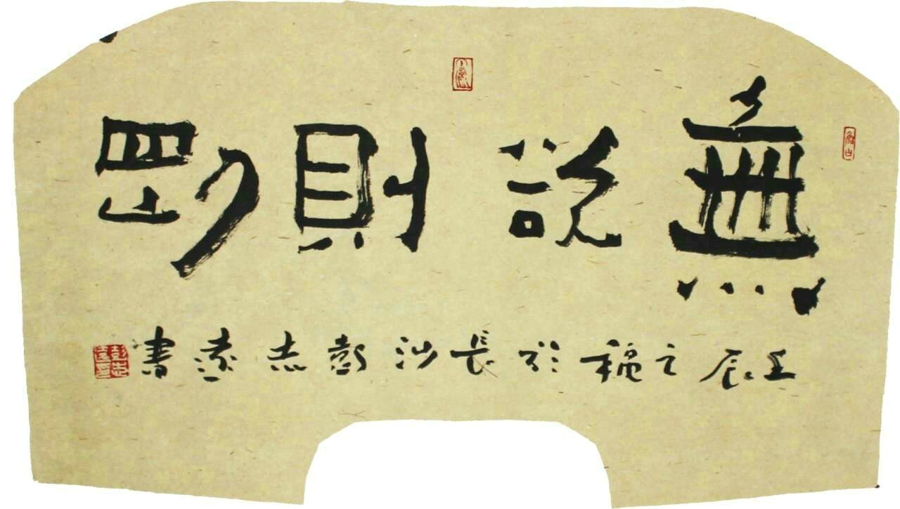 無欲則剛
壬辰之穐於長沙彭志遠書